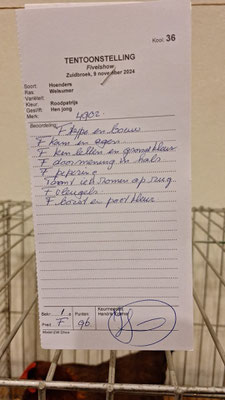 Kooi: 36
TENTOONSTELLING
Fivelshow
Zuidbroek, 9 november 2024
Soort: Hoenders
Ras: Welsumer
Variëteit:
Kleur: Roodpatrijs
Geslacht: Hen jong
Merk: 4902
Beoordeling: F type en bouw
F kam en ogen
F kin lellen en grondkleur
F doortekening in hals
F peper
iets op rug
F vleugels
F borst en pootkleur
Bekr: 1
Pred: F
Punten: 96
Keurmeester: